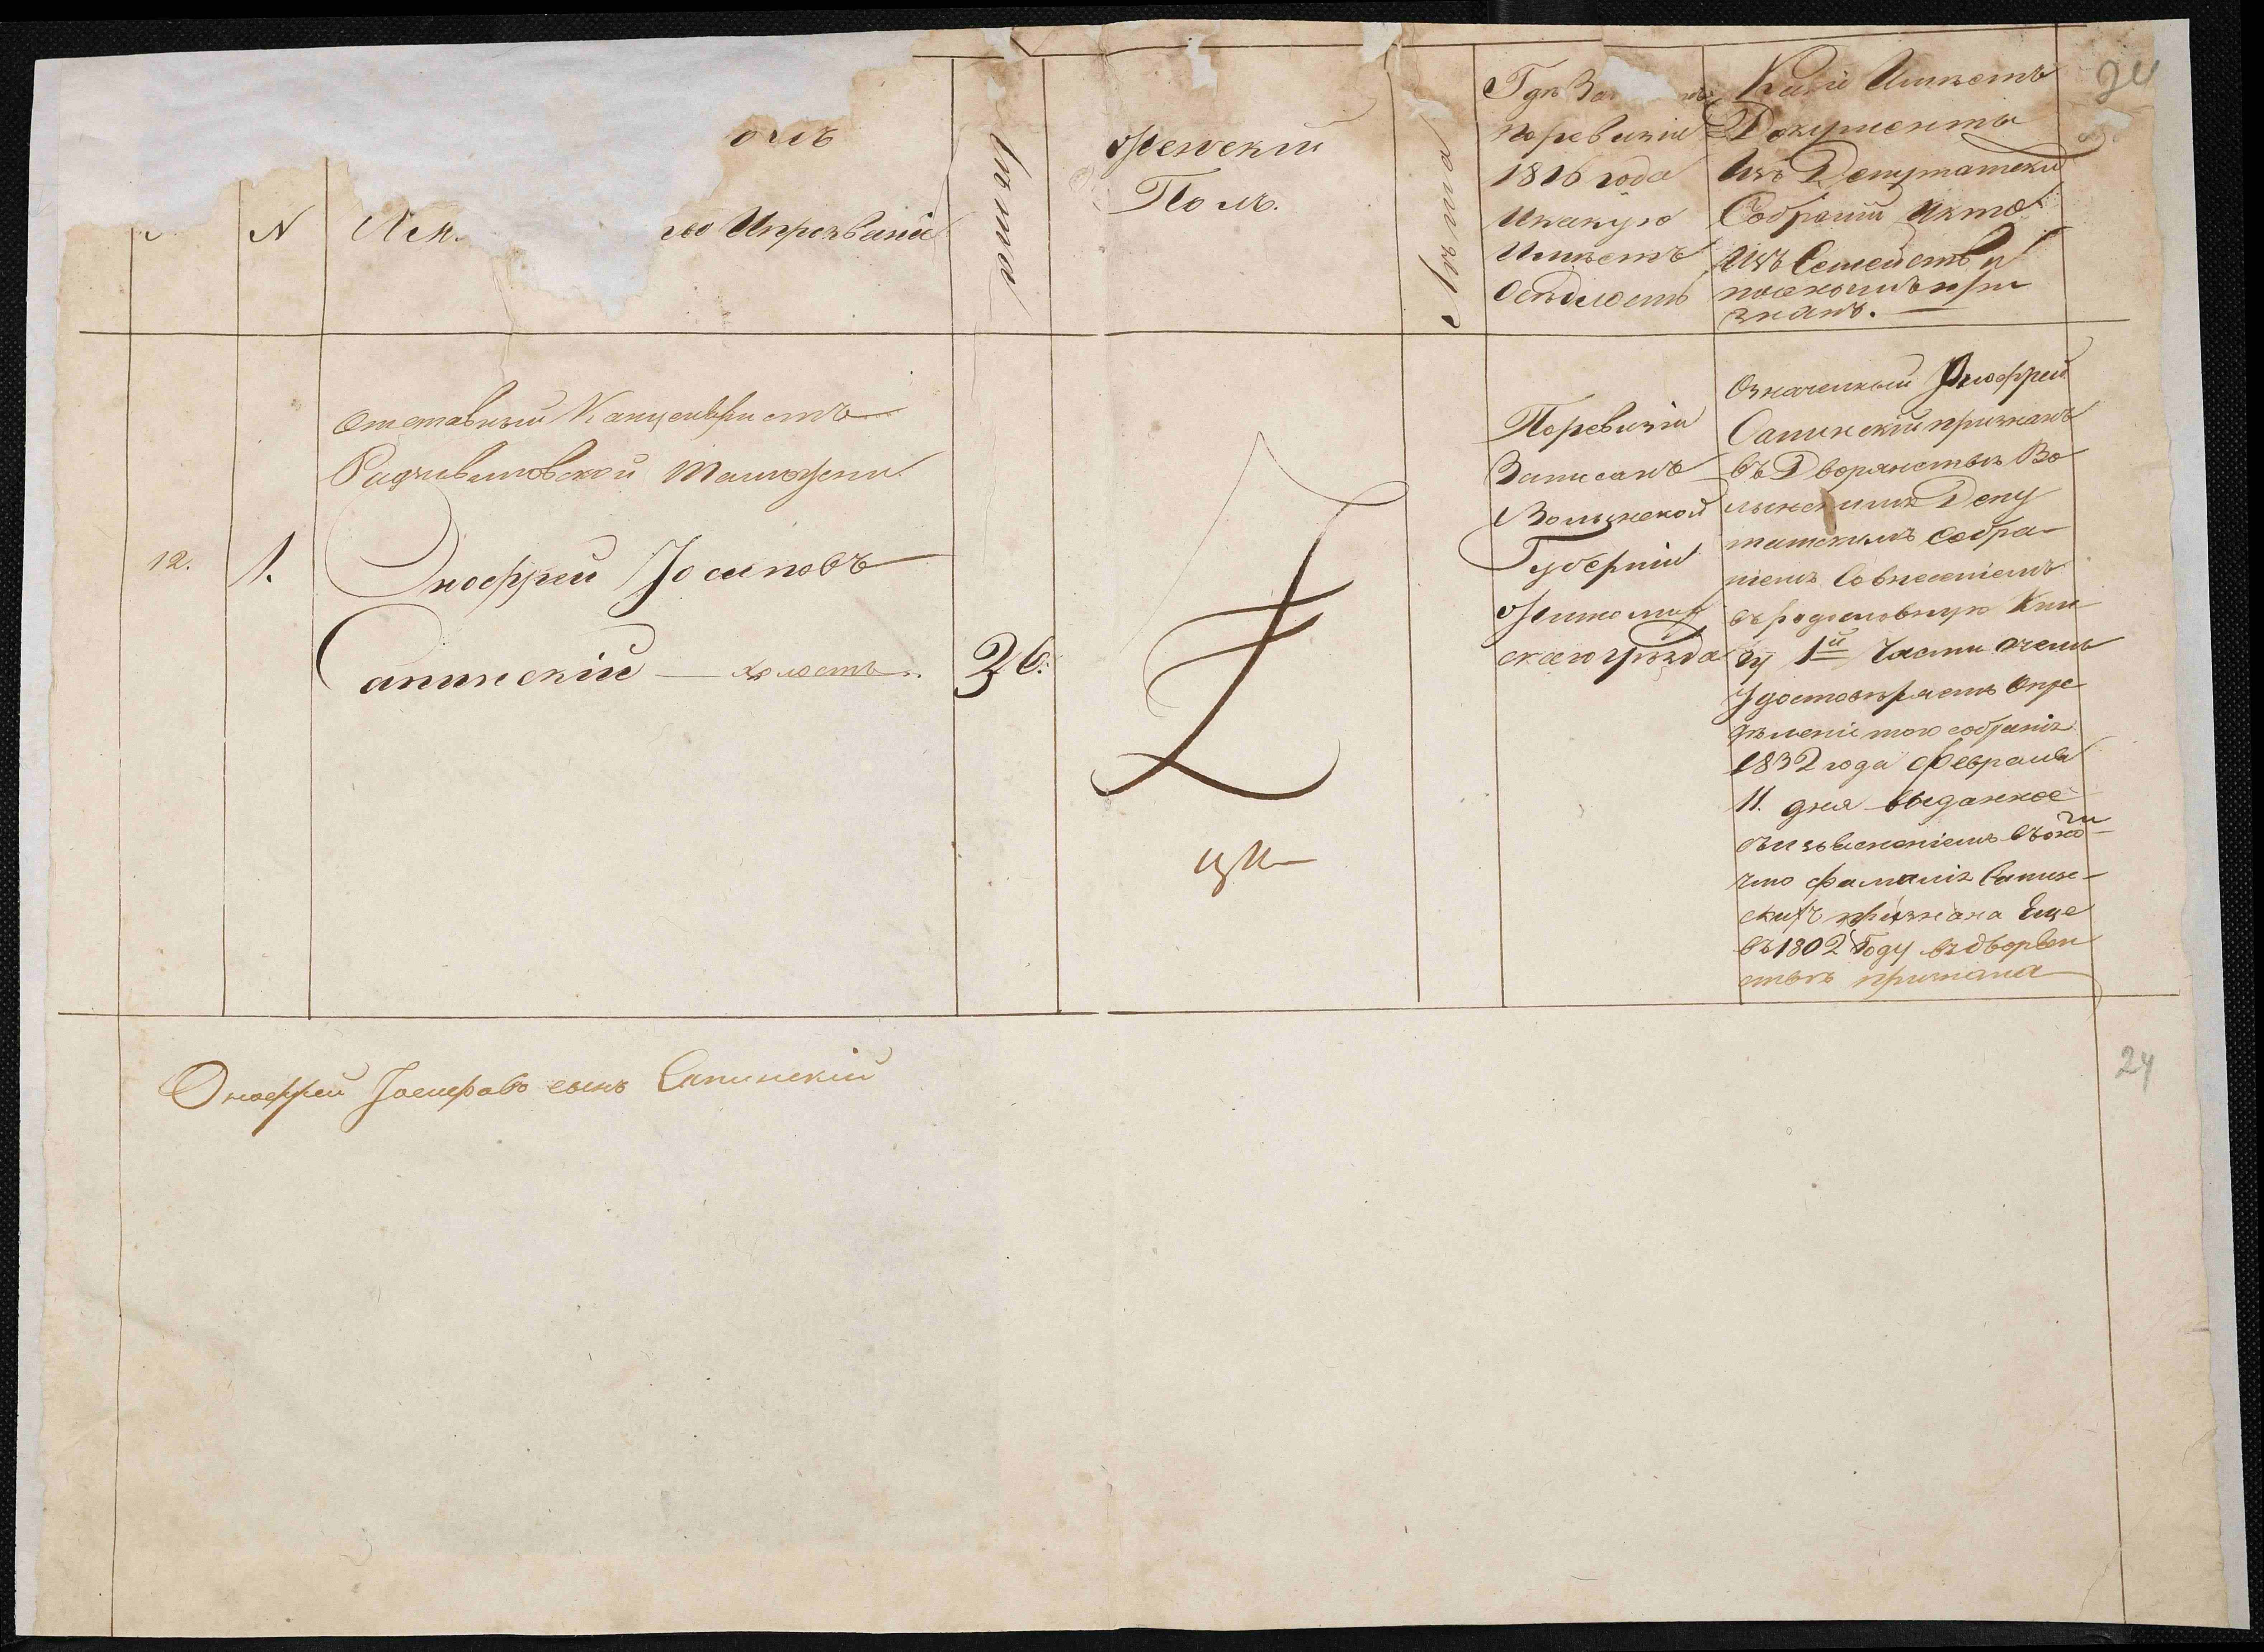 24
олъ
N
Имя
его Ипрозваніе
Лѣта
Женскій
Полъ.
Лѣта
Гдѣ За
поревизіи
1816 года
Икакую
Имѣетъ
Осѣдлость
Какіе Имѣетъ
Документы
Изъ Депутатскаго
Собранія Икто
Изъ Семейства
поономъ при
знанъ.
12.
1.
Отставный Канцеляристъ
Радзивиловской Таможни
Онофрей Іосиповъ
Сапинскій — холостъ.
36.
Поревизіи
Записанъ
Волынской
Губерніи
Житомир
скаго уѣзда
Означенный Онофрей
Сапинскій признанъ
въ Дворянствѣ Во
лынскимъ Депу
татскимъ Собра-
ніемъ Совнесеніемъ
въ родословную Кни
гу 1й Части очемъ
Удостовѣряетъ Опре
дѣленіе того собранія
1832 года Февраля
11. дня выданное
что фамилія Сапин-
скихъ признана Еще
въ 1802 Году въ дворян
ствѣ признана
Онофрей Іосифовъ сынъ Сапинскій
24